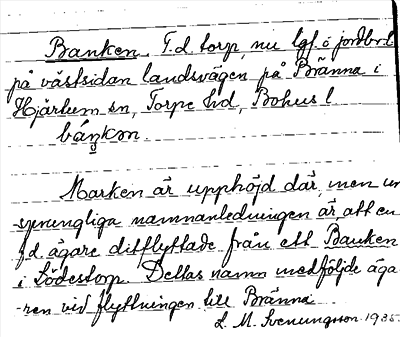 Banken. F.d. torp, nu lgf. i jordbr.l
på västsidan landsvägen på Bränna i
Hjärtum sn, Torpe hd, Bohus l
báŋkən.
Marken är upphöjd där, men ur
sprungliga namnanledningen är, att en
f.d. ägare ditflyttade från ett Banken
i Södestorp. Dettas namn medföljde äga
-ren vid flyttningen till Bränna.
L. M. Svenungsson 1935.